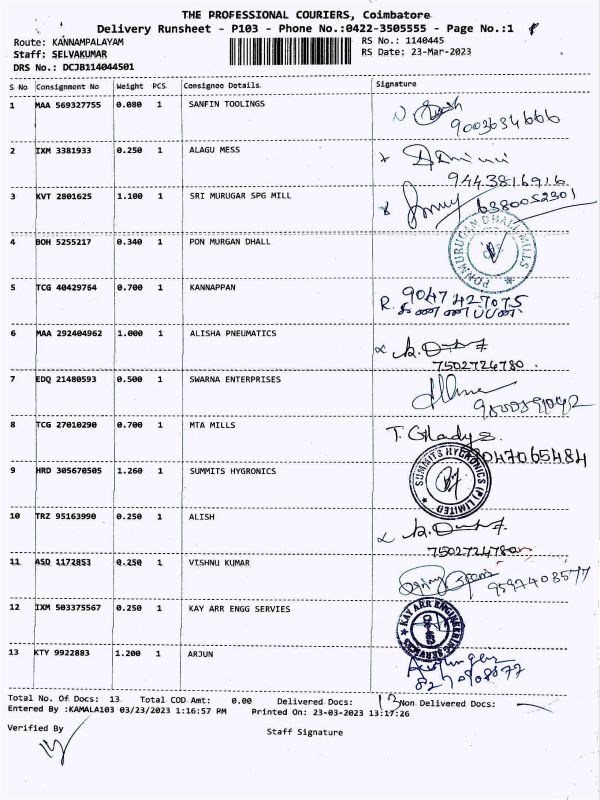 THE PROFESSIONAL COURIERS, Coimbatore
Delivery Runsheet - P103 - Phone No.:0422-3505555 - Page No.:1
Route: KANNAMPALAYAM
RS No.: 1140445
Staff: SELVAKUMAR
RS Date: 23-Mar-2023
DRS No.: DCJB114044501
S No Consignment No Weight PCS Consignee Details Signature
1 MAA 569327755 0.080 1 SANFIN TOOLINGS
9003634666
2 IXM 3381933 0.250 1 ALAGU MESS
9443816916
3 KVT 2801625 1.100 1 SRI MURUGAR SPG MILL
6380052301
4 BOH 5255217 0.340 1 PON MURGAN DHALL
PONMURUGAN DHALL MILLS
5 TCG 40429764 0.700 1 KANNAPPAN
R. 9047427075
கண்ணப்பன்
6 MAA 292404962 1.000 1 ALISHA PNEUMATICS
7502724780
7 EDQ 21480593 0.500 1 SWARNA ENTERPRISES
8 TCG 27010290 0.700 1 MTA MILLS
T. Gladys
9047065484
9 HRD 305670505 1.260 1 SUMMITS HYGRONICS
SUMMITS HYGRONICS (P) LIMITED
10 TRZ 95163990 0.250 1 ALISH
7502724780
11 ASD 1172853 0.250 1 VISHNU KUMAR
9597403577
12 IXM 503375567 0.250 1 KAY ARR ENGG SERVIES
KAY ARR ENGINEERING SERVICES
13 KTY 9922883 1.200 1 ARJUN
Total No. Of Docs: 13 Total COD Amt: 0.00 Delivered Docs: 13 Non Delivered Docs:
Entered By :KAMALA103 03/23/2023 1:16:57 PM Printed On: 23-03-2023 13:17:26
Verified By
Staff Signature